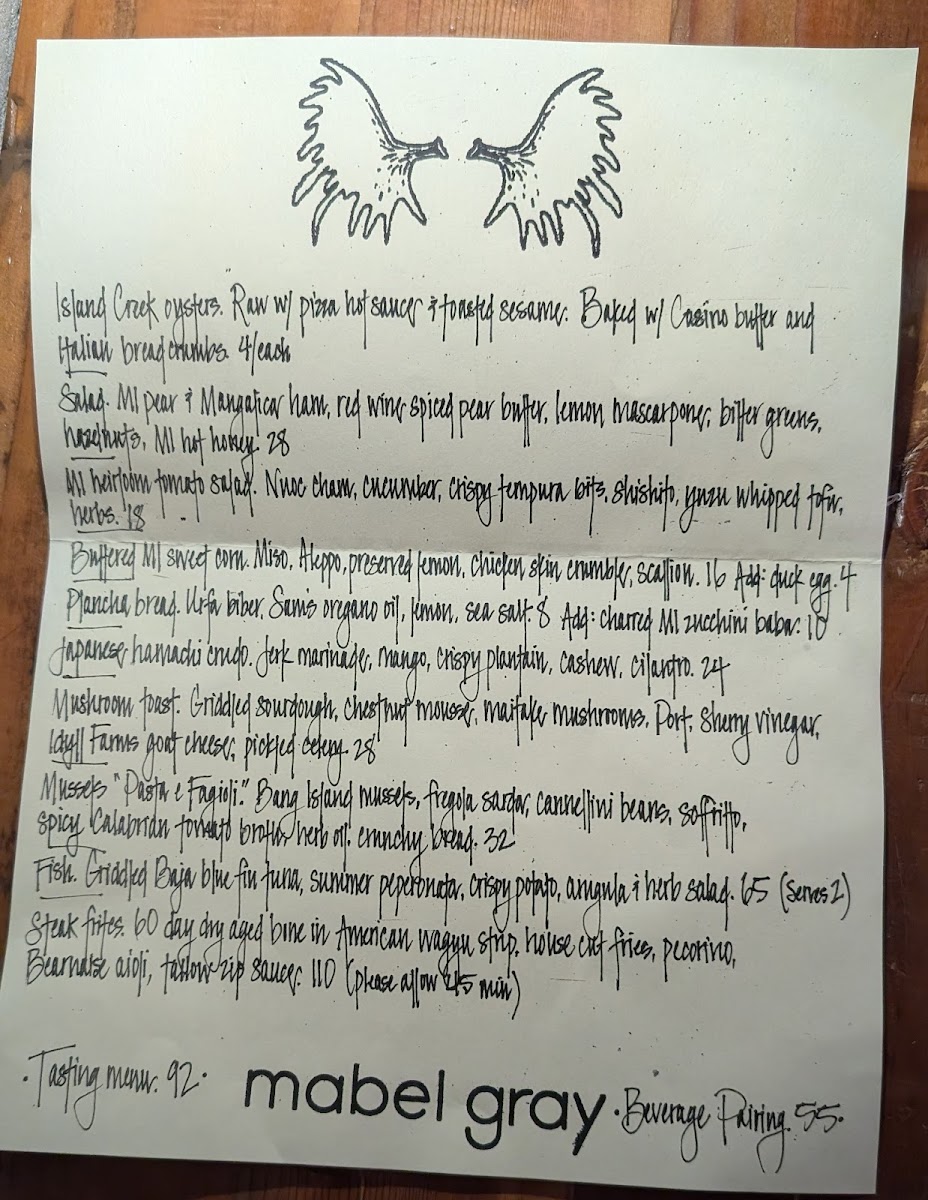 Island Creek oysters. Raw w/ pizza hot sauce & toasted sesame. Baked w/ Casino butter and
Italian breadcrumbs. 4/each
Salad. MI pear & Mangalica ham, red wine spiced pear butter, lemon mascarpone, bitter greens,
hazelnuts, MI hot honey. 28
MI heirloom tomato salad. Nuoc cham, cucumber, crispy tempura bits, shishito, yuzu whipped tofu,
herbs. 18
Buttered MI sweet corn. Miso, Aleppo, preserved lemon, chicken skin crumble, scallion. 16 Add: duck egg. 4
Plancha bread. Urfa biber, Sam's oregano oil, lemon, sea salt. 8 Add: charred MI zucchini baba. 10
Japanese hamachi crudo. Jerk marinade, mango, crispy plantain, cashew, cilantro. 24
Mushroom toast. Griddled sourdough, chestnut mousse, maitake mushrooms, Port, Sherry vinegar,
Idyll Farms goat cheese, pickled celery. 28
Mussels "Pasta e Fagioli." Bang Island mussels, fregola sarda, cannellini beans, soffritto,
spicy Calabrian tomato broth, herb oil. crunchy bread. 32
Fish. Griddled Baja blue fin tuna, summer peperonata, crispy potato, arugula & herb salad. 65 (Serves 2)
Steak frites. 60 day dry aged bone in American wagyu strip, house cut fries, pecorino,
Bearnaise aioli, tallow zip sauce. 110 (please allow 45 min)
·Tasting menu. 92·
mabel gray
·Beverage Pairing. 55·